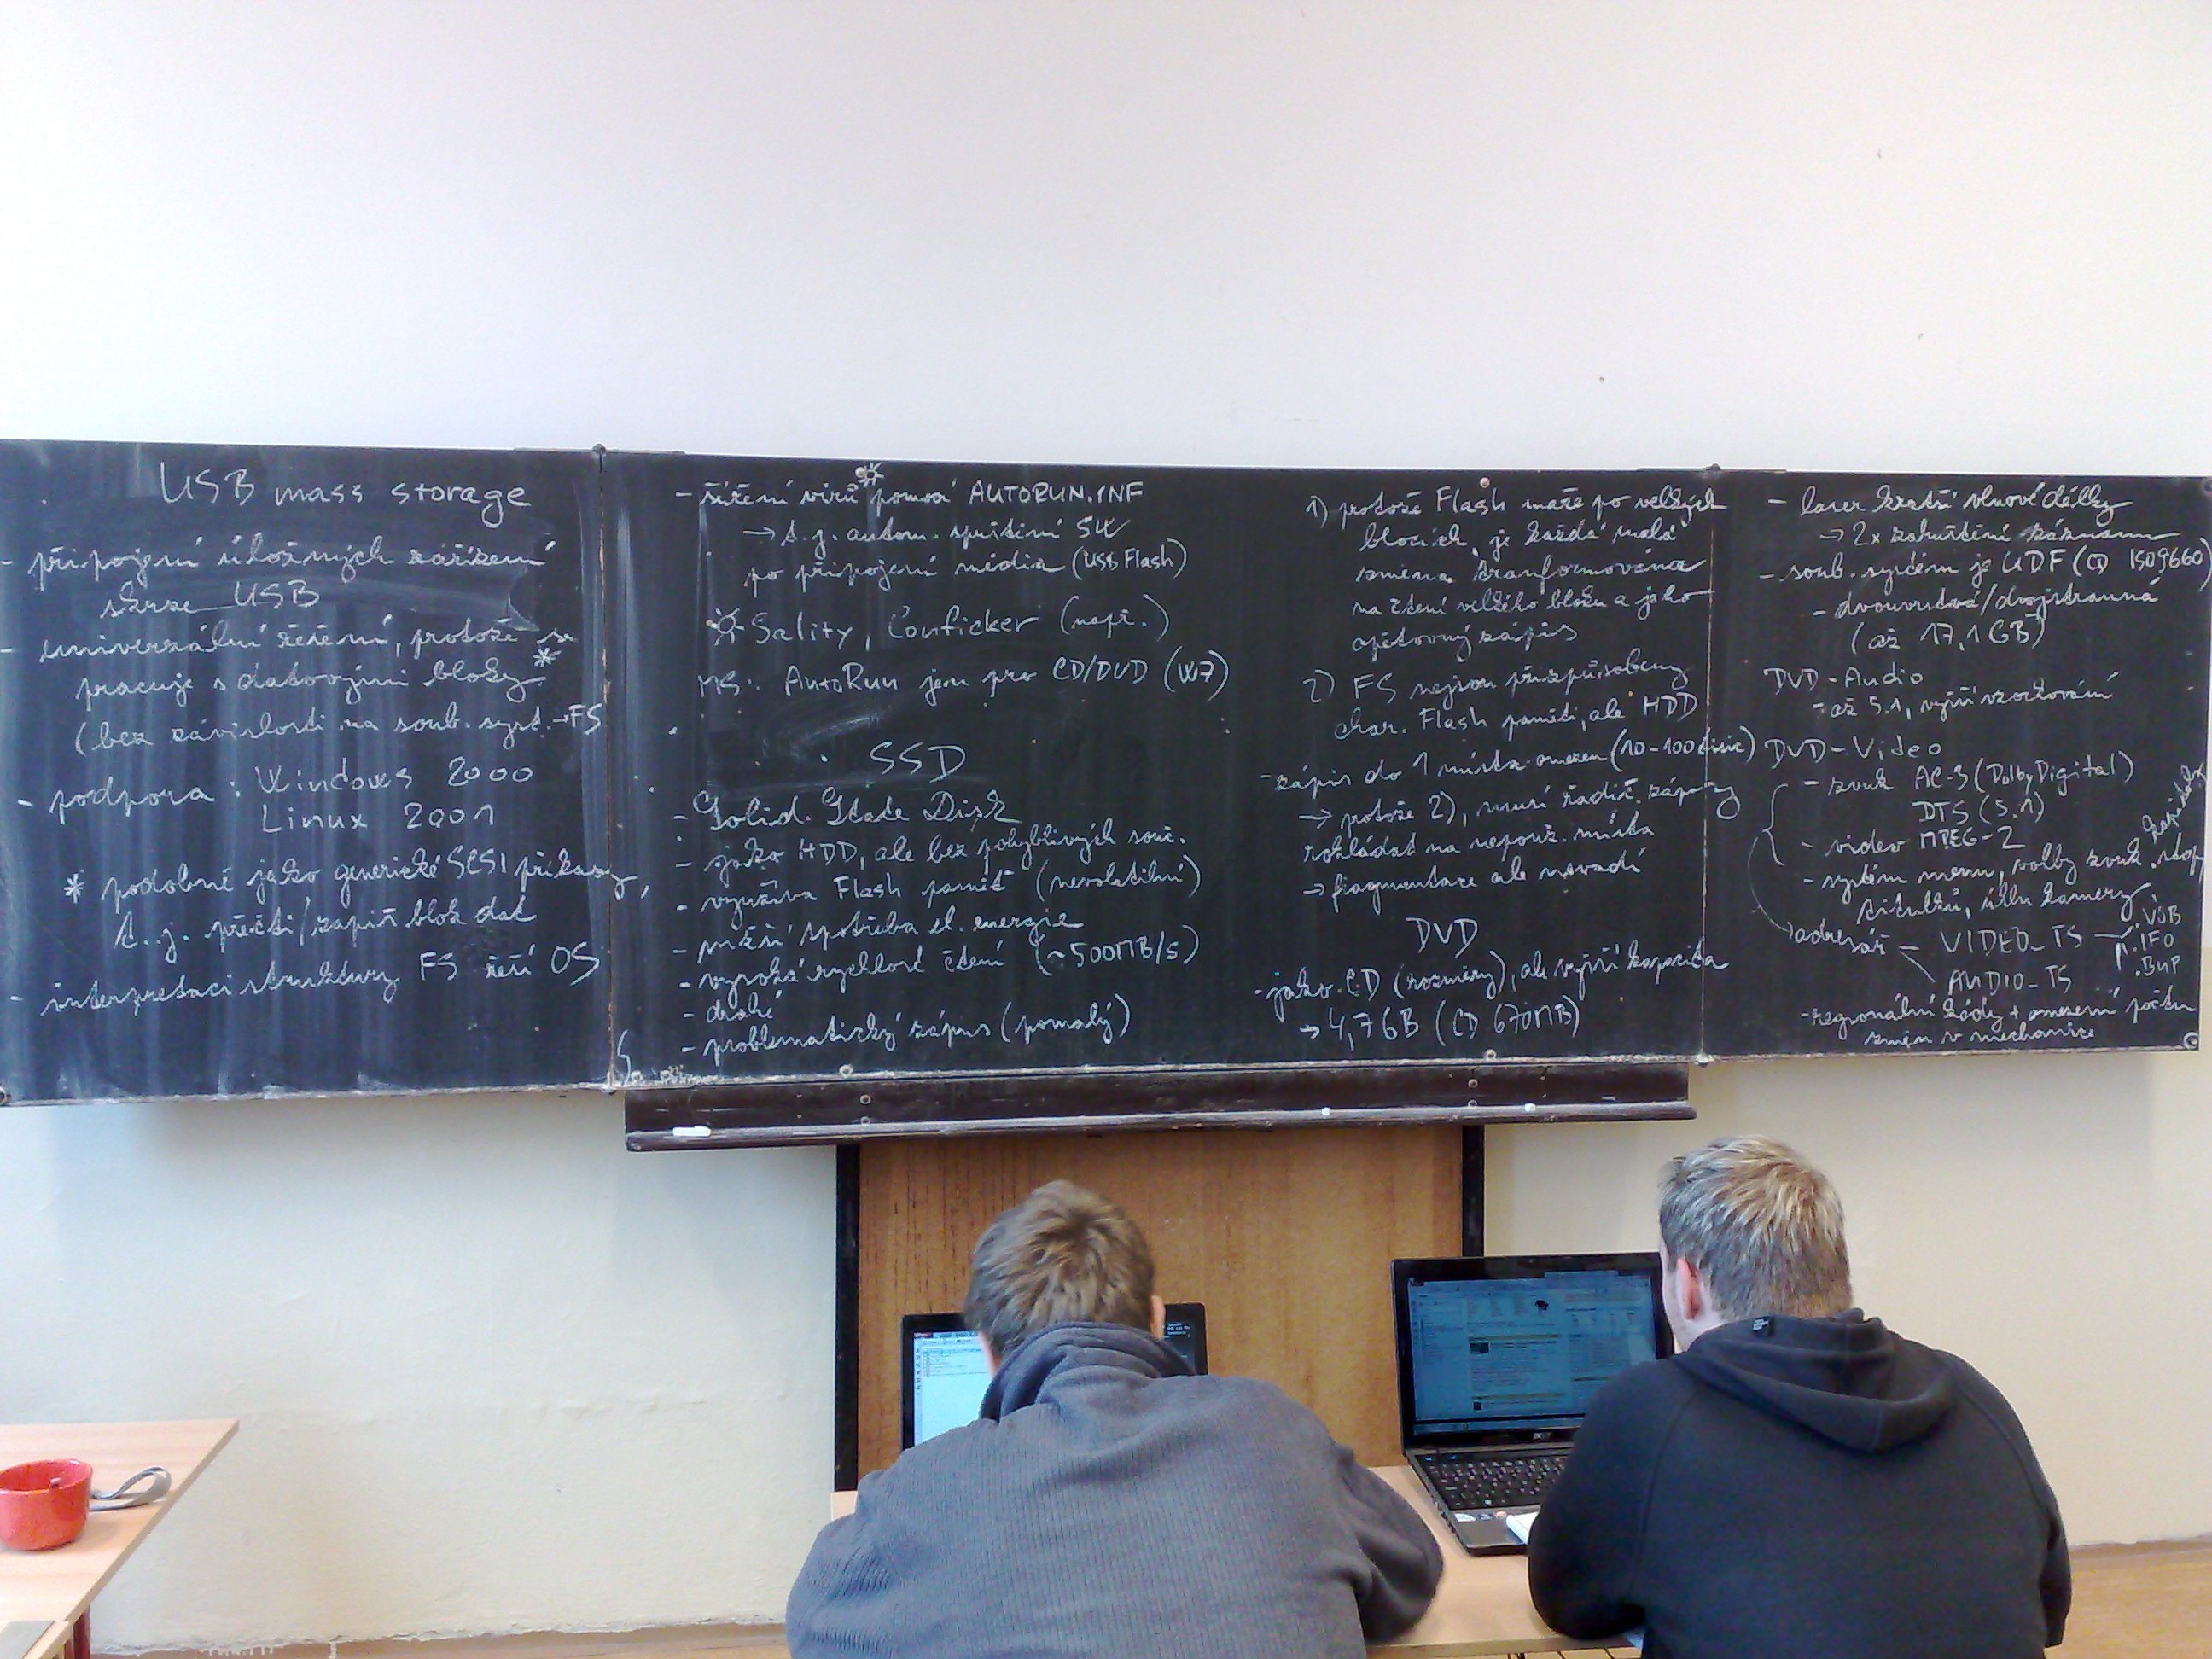 USB mass storage
- připojení úložných zařízení
skrze USB
- univerzální řešení, protože se
pracuje s datovými bloky *
(bez závislosti na soub. syst. → FS
- podpora: Windows 2000
Linux 2001
* podobné jako generické SCSI příkazy,
t.j. přečti/zapiš blok dat
- interpretaci struktury FS řeší OS
- šíření virů pomocí AUTORUN.INF
→ t.j. autom. spuštění SW
po připojení média (USB Flash)
Sality, Conficker (např.)
MS: AutoRun jen pro CD/DVD (W7)
SSD
- Solid State Disk
- jako HDD, ale bez pohyblivých souč.
- využívá Flash paměť (nevolatilní)
- nižší spotřeba el. energie
- vysoká rychlost čtení (~500MB/s)
- drahé
- problematický zápis (pomalý)
1) protože Flash maže po velkých
blocích, je každá malá
změna tranformována
na čtení velkého bloku a jeho
opětovný zápis
2) FS nejsou přizpůsobeny
char. Flash paměti, ale HDD
- zápis do 1 místa omezen (10-100 tisíc)
→ protože 2), musí řadič zápisy
rozkládat na nepouž. místa
→ fragmentace ale nevadí
DVD
- jako CD (rozměry), ale vyšší kapacita
→ 4,7GB (CD 670MB)
- laser kratší vlnové délky
→ 2x zahuštění záznamu
- soub. systém je UDF (CD ISO9660)
- dvouvrstvá/dvojstranná
(až 17,1GB)
DVD-Audio
- až 5.1, vyšší vzorkování
DVD-Video
- zvuk AC-3 (DolbyDigital)
DTS (5.1)
- video MPEG-2
- systém menu, volby zvuk. stop,
titulků, úhlu kamery
adresář - VIDEO_TS
.VOB
.IFO
.BUP
AUDIO_TS
- regionální kódy + omezení počtu
změn v mechanice